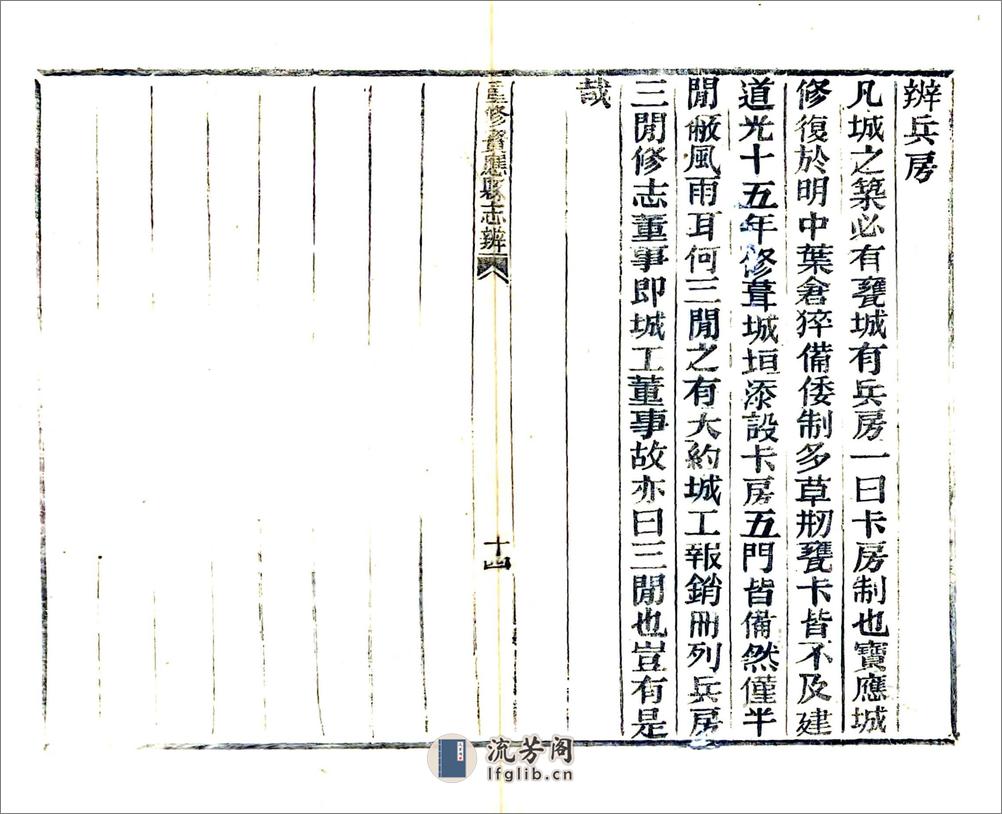 辨兵房
凡城之築必有甕城有兵房一曰卡房制也寶應城
修復於明中葉倉猝備倭制多草刱甕卡皆不及建
道光十五年修葺城垣添設卡房五門皆備然僅半
閒蔽風雨耳何三閒之有大約城工報銷冊列兵房
三閒修志董事即城工董事故亦曰三閒也豈有是
哉
重修寶應縣志辨
十四
流芳阁
lfglib.cn